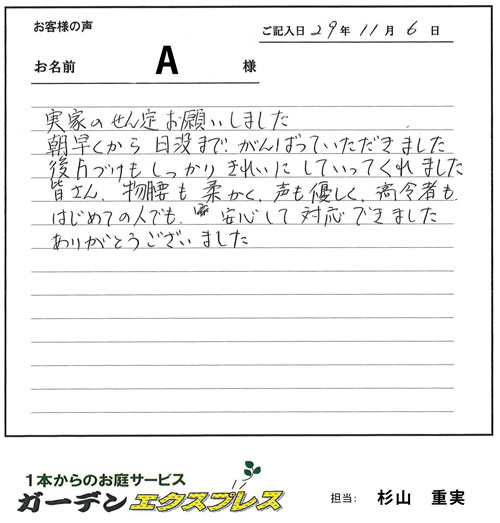 お客様の声
ご記入日 29年 11月 6日
お名前 A 様
実家のせん定お願いしました
朝早くから 日没まで がんばっていただきました
後片づけも しっかり きれいに していってくれました
皆さん、物腰も 柔かく、声も優しく、高令者も、
はじめての人でも、安心して 対応できました
ありがとうございました
1本からのお庭サービス
ガーデンエクスプレス
担当: 杉山 重実